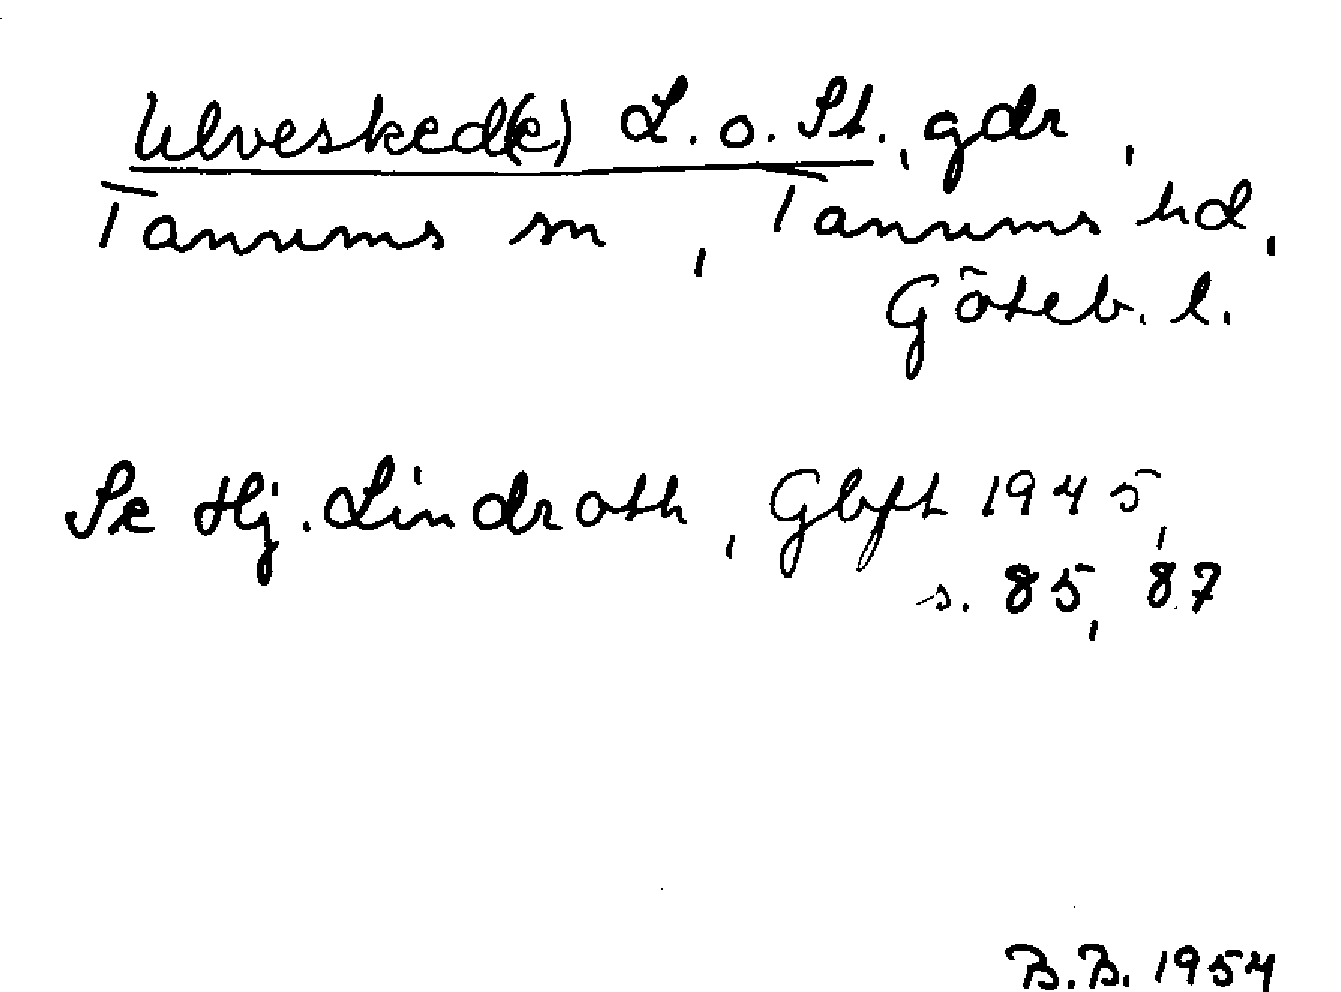 Ulvesked(e) L. o. St., gdr,
Tanums sn, Tanums hd,
Göteb. l.
Se Hj. Lindroth, Gbft 1945,
s. 85, 87
B.B. 1954